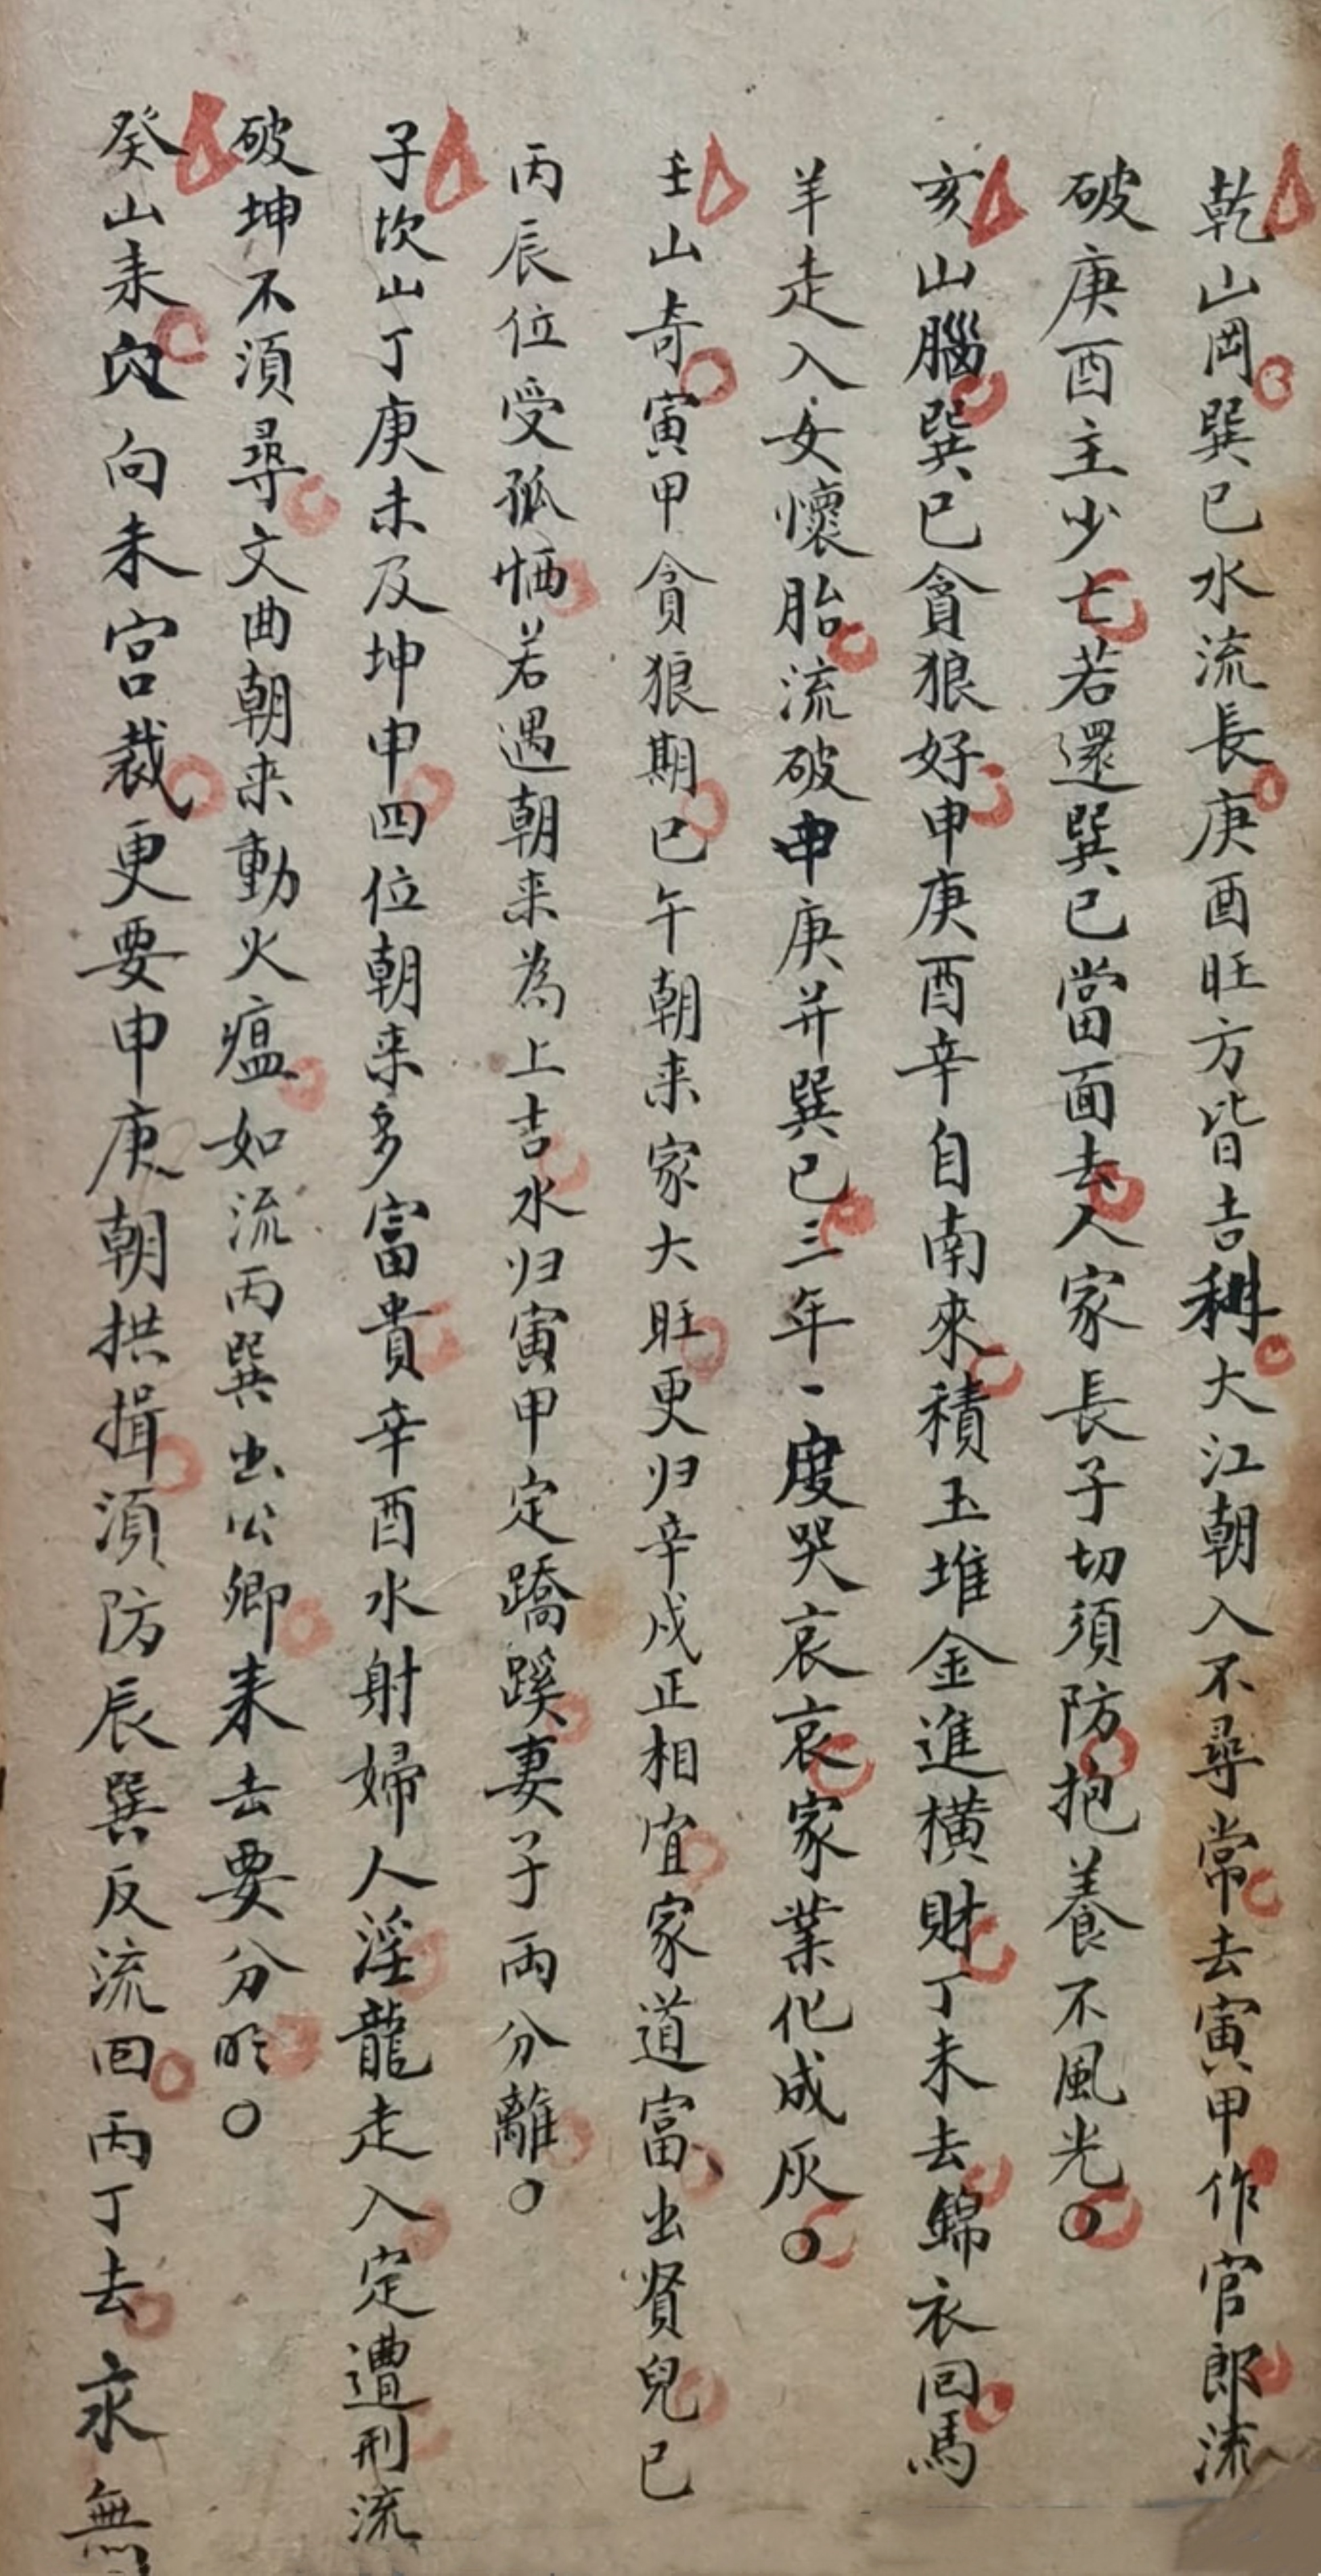 乾山岡巽巳水流長庚酉旺方皆吉利大江朝入不尋常去寅甲作官郎流
破庚酉主少亡若還巽巳當面去人家長子切須防抱養不風光○
亥山腦巽巳貪狼好申庚酉辛自南來積玉堆金進橫財丁未去錦衣回馬
羊走入女懷胎流破申庚并巽巳三年一度哭哀哀家業化成灰○
壬山奇寅甲貪狼期巳午朝来家大旺更归辛戍正相宜家道富出贤兒巳
丙辰位受孤恓若遇朝来為上吉水归寅甲定蹻蹊妻子兩分離○
子坎山丁庚未及坤申四位朝来多富貴辛酉水射婦人淫龍走入定遭刑流
破坤不須尋文曲朝来動火瘟如流丙巽出公卿来去要分明○
癸山来穴向未宫裁更要申庚朝拱揖須防辰巽反流回丙丁去永無